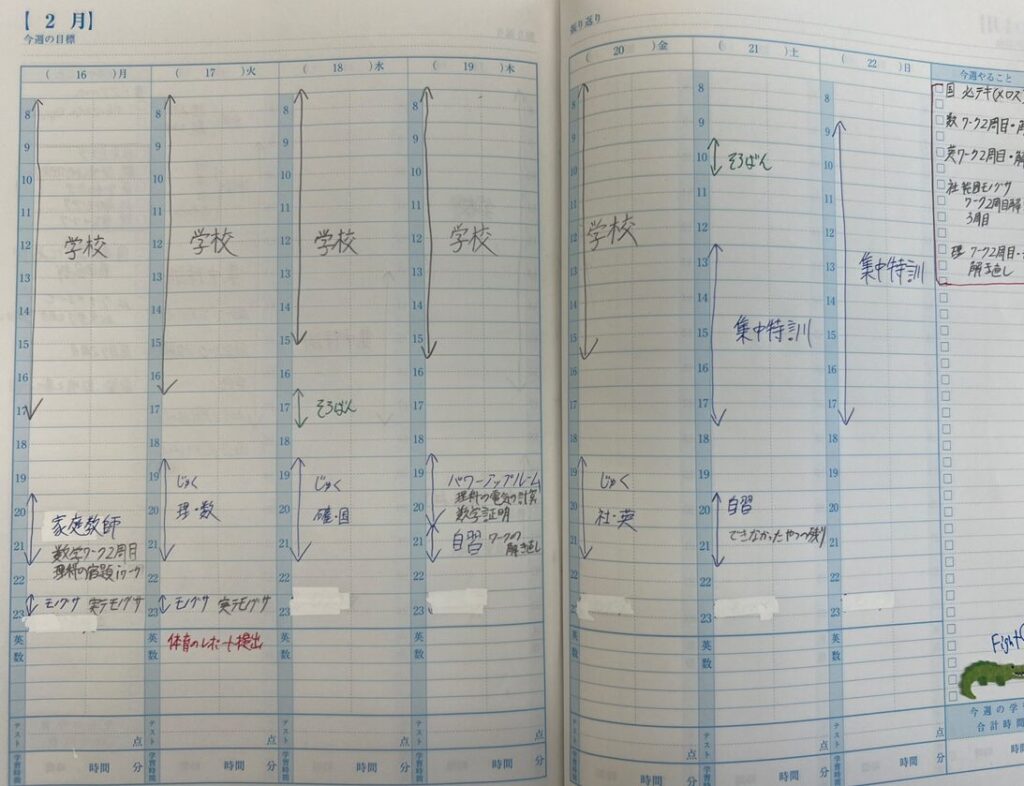 【 2 月】
今週の目標
( 16 )月
( 17 )火
( 18 )水
( 19 )木
8
9
10
11
12
13
14
15
16
17
18
19
20
21
22
23
学校
学校
学校
学校
そろばん
家庭教師
数学ワーク2周目
理科の宿題
モノグサ 実テモノグサ
じゅく
理・数
モノグサ 実テモノグサ
体育のレポート提出
じゅく
確・国
パワーアップルーム
理科の電気の計算
数学証明
自習 ワークの
解き直し
英
数
テスト
点
学習時間
時間 分
振り返り
( 20 )金
( 21 )土
( 22 )日
今週やること
学校
じゅく
社・英
そろばん
集中特訓
自習
できなかったやつの残り
集中特訓
国 必テキ(メロス)
数 ワーク2周目・
英 ワーク2周目・解
社 範囲モノグサ
ワーク2周目解
3周目
理 ワーク2周目・
解き直し
Fight
今週の学
合計時間
英
数
テスト
点
学習時間
時間 分